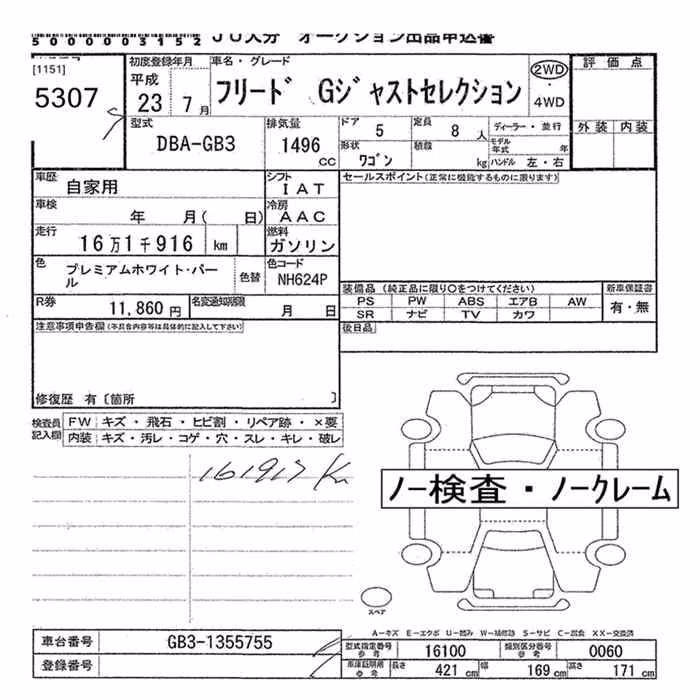 5000003152 JU大分 オークション出品申込書
[1151]
5307
初度登録年月
平成
23 7月
車名・グレード
フリード Gジャストセレクション
2WD
・
4WD
評価点
外装 内装
型式
DBA-GB3
排気量
1496
cc
ドア 5
定員 8人
ディーラー・並行
モデル年式 年
形状
ワゴン
積載
kg
ハンドル 左・右
車歴 自家用
シフト
IAT
セールスポイント(正常に機能するものに限ります)
車検
年 月( 日)
冷房
AAC
走行
16万1千916 km
燃料
ガソリン
色
プレミアムホワイト・パール
色替
色コード
NH624P
R券
11,860円
名変通知期限
月 日
装備品(純正品に限り○をつけてください)
新車保証書
PS PW ABS エアB AW
有・無
SR ナビ TV カワ
後日品
注意事項申告欄(不具合内容等は具体的に記入して下さい)
修復歴 有〔箇所 〕
検査員記入欄
FW キズ・飛石・ヒビ割・リペア跡・×要
内装 キズ・汚レ・コゲ・穴・スレ・キレ・破レ
161917 Km
ノー検査・ノークレーム
スペア
A-キズ E-エクボ U-凹み W-補修跡 S-サビ C-腐食 XX-交換済
車台番号
GB3-1355755
型式指定番号
参考
16100
類別区分番号
参考
0060
登録番号
車庫証明用
参考
長さ 421 cm
幅 169 cm
高さ 171 cm